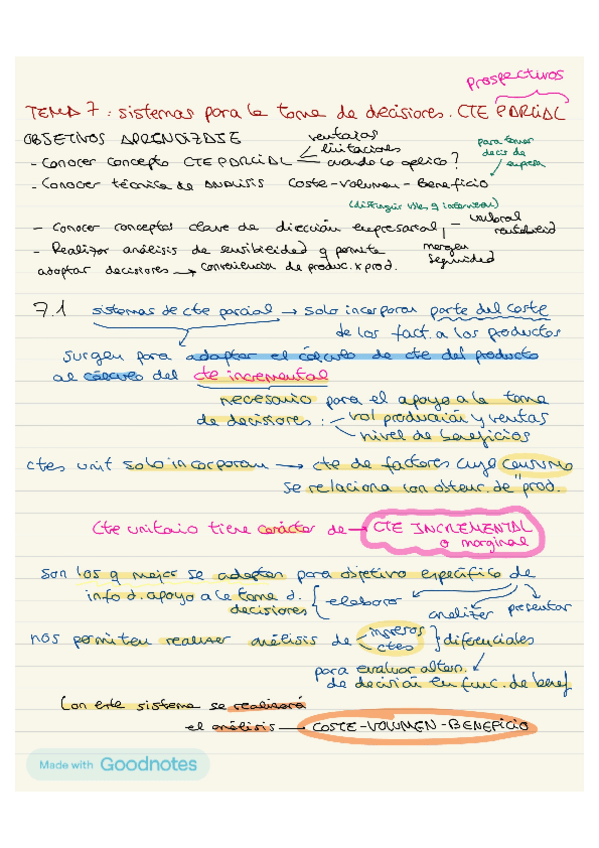 prospectivos
TEMA 7: sistemas para la toma de decisiones. CTE PARCIAL
OBJETIVOS APRENDIZAJE
ventajas
limitaciones
- Conocer concepto CTE PARCIAL cuando lo aplico?
para tomar
decis de
empresa
- Conocer técnica de ANÁLISIS Coste-Volumen-Beneficio
(distinguir vbles q intervienen)
- Conocer conceptos clave de dirección empresarial, - umbral
rentabilidad
- Realizar análisis de sensibilidad q permite margen
seguridad
adoptar decisiones → conveniencia de produc. x prod.
7.1 sistemas de cte parcial → solo incorporan parte del coste
de los fact. a los productos
surgen para adaptar el cálculo de cte del producto
al cálculo del cte incremental
necesario para el apoyo a la toma
de decisiones: - vol producción y ventas
- nivel de beneficios
ctes unit solo incorporan → cte de factores cuyo consumo
se relaciona con obtenc. de prod.
Cte unitario tiene carácter de → CTE INCREMENTAL
o marginal
son los q mejor se adaptan para objetivo específico de
info d. apoyo a la toma d.
decisiones { elaborar analizar presentar
nos permiten realizar análisis de ingresos
ctes } diferenciales
para evaluar altern.
de decisión en func. de benef
Con este sistema se realizará
el análisis → COSTE-VOLUMEN-BENEFICIO
Made with Goodnotes